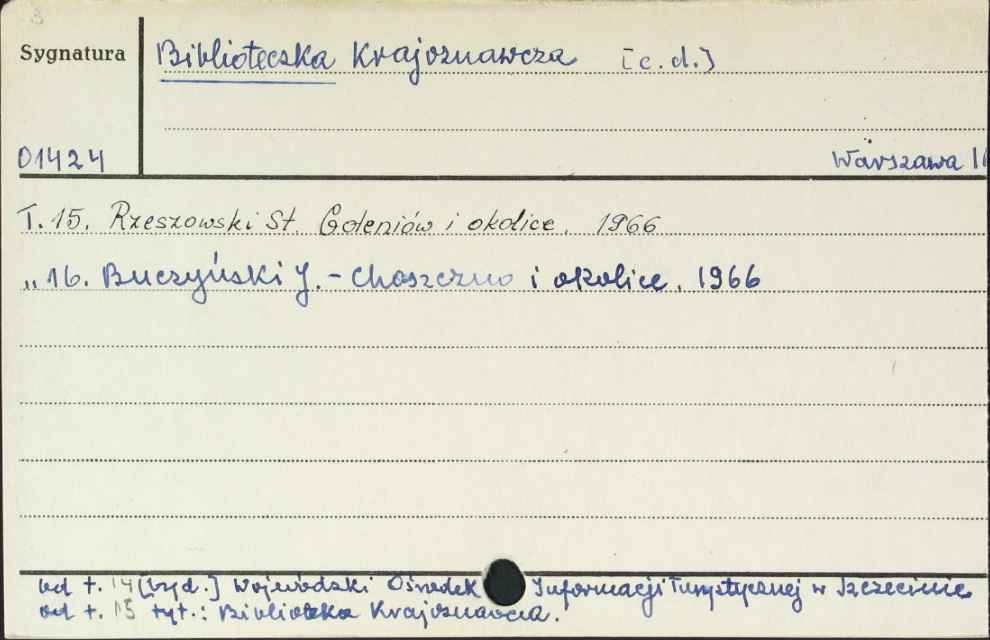 Sygnatura
Biblioteczka Krajoznawcza [c.d.]
01424
Warszawa
T. 15. Rzeszowski St. Goleniów i okolice. 1966
„ 16. Buczyński J. – Choszczno i okolice. 1966
od t. 14 [wyd.] Wojewódzki Ośrodek Informacji Turystycznej w Szczecinie
od t. 15 tyt.: Biblioteka Krajoznawcza.